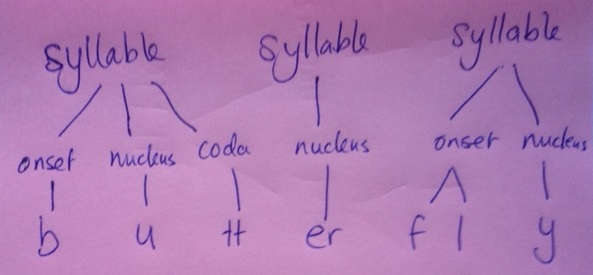 syllable syllable syllable
onset nucleus coda nucleus onset nucleus
b u tt er f l y